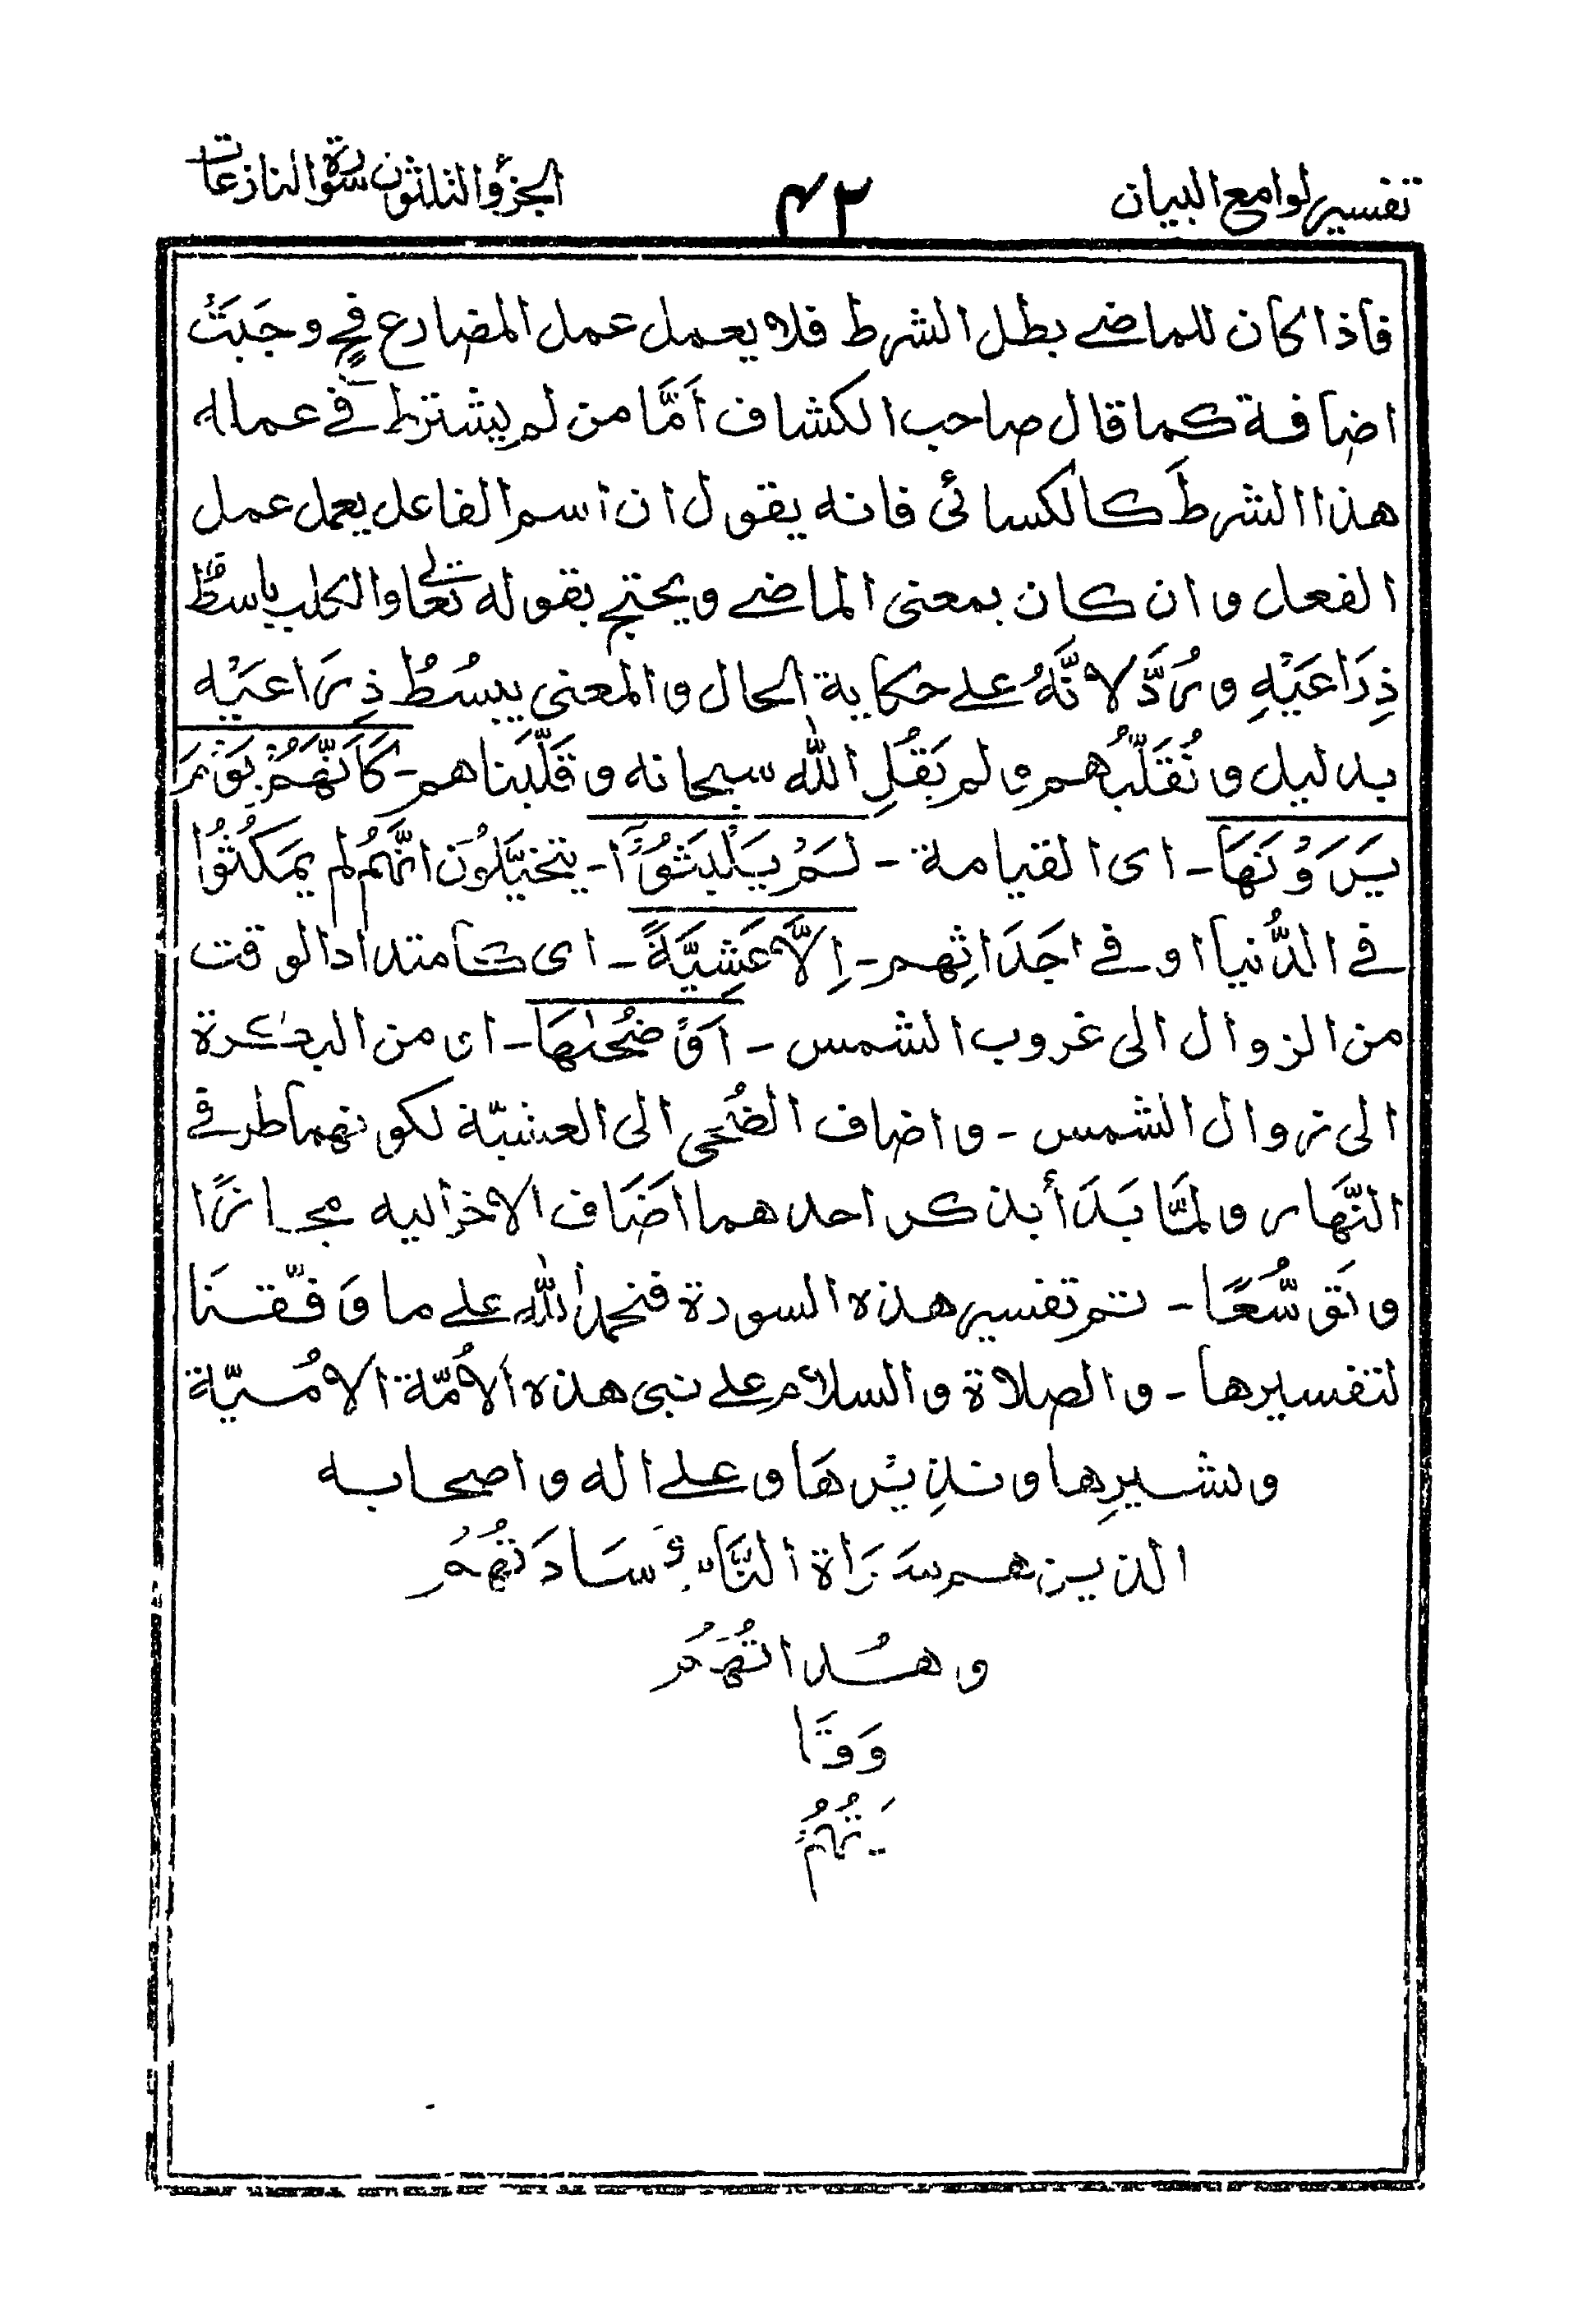 تفسير لوامع البيان ٤٢ الجزؤ الثلثون سورة النازعات
فاذا كان للماضے بطل الشرط فلا يعمل عمل المضارع فحٍ وجَبَتْ
اضافة كما قال صاحب الكشاف اَمَّا من لم يشترط فے عمله
هذا الشرطَ كالكسائى فانه يقول ان اسم الفاعل يعمل عمل
الفعل وان كان بمعنى الماضے ويحتج بقوله تعالى والكلب باسطٌ
ذِرَاعَيْهِ ورُدَّ لانَّهُ علے حكاية الحال والمعنى يبسُطُ ذِرَاعَيْه
بدليل ونُقَلّبُهُم ولم يَقُلِ اللّٰه سبحانه وقَلَّبَناهم - كَاَنَّهُمْ يَوْمَ
يَرَوْنَهَا - اى القيامة - لَمْ يَلْبَثُوْٓا - يتخيَّلُوْن انَّهُمُ لم يَمكُثُوُا
فے الدُّنيا او فے اجَدَاثِهم - اِلَّا عَشِيَّةً - اى كامتداد الوقت
من الزوال الى غروب الشمس - اَوْ ضُحٰىهَا - اى من البكرة
الى زوال الشمس - واضاف الضُحَى الى العشيّة لكونهما طرفے
النَّهار ولمَّا بَدَأ بذكر احدهما اضَاف الاخر اليه مجازًا
وتَوسُّعًا - تم تفسير هذه السورة فنحمد اللّٰه علے ما وَفّقنَا
لتفسيرها - والصلاة والسلام علے نبى هذه الاُمّة الاُمّيّة
وبشيرِها ونذِيْرِهَا وعلے اله واصحابه
الذين هم سَرَاة النَّاس وسَادَتُهُمُ
وهُداتُهُمُ
وَوَقَا
تُهُمُ